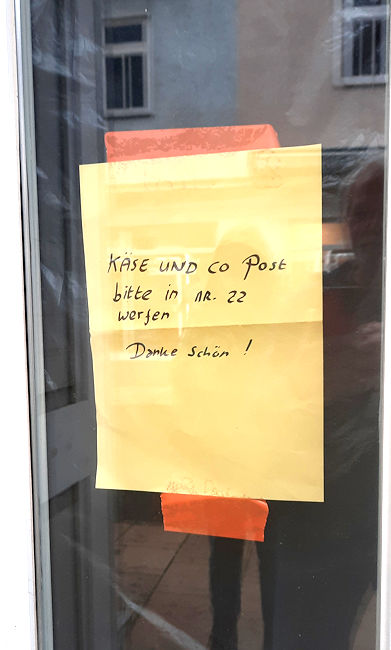 KÄSE UND CO POST
bitte in NR. 22
werfen
Danke schön !